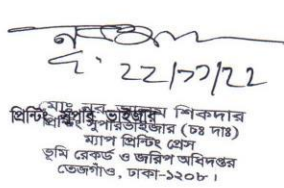 ২২/১১/২২
মোঃ নুর আলম শিকদার
প্রিন্টিং সুপারভাইজার (চঃ দাঃ)
ম্যাপ প্রিন্টিং প্রেস
ভূমি রেকর্ড ও জরিপ অধিদপ্তর
তেজগাঁও, ঢাকা-১২০৮।